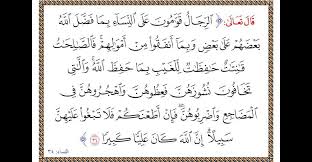 قال تعالى: ﴿ ٱلرِّجَالُ قَوَّٰمُونَ عَلَى ٱلنِّسَآءِ بِمَا فَضَّلَ ٱللَّهُ
بَعْضَهُمْ عَلَىٰ بَعْضٍ وَبِمَآ أَنفَقُوا۟ مِنْ أَمْوَٰلِهِمْ ۚ فَٱلصَّٰلِحَٰتُ
قَٰنِتَٰتٌ حَٰفِظَٰتٌ لِّلْغَيْبِ بِمَا حَفِظَ ٱللَّهُ ۚ وَٱلَّٰتِى
تَخَافُونَ نُشُوزَهُنَّ فَعِظُوهُنَّ وَٱهْجُرُوهُنَّ فِى
ٱلْمَضَاجِعِ وَٱضْرِبُوهُنَّ ۖ فَإِنْ أَطَعْنَكُمْ فَلَا تَبْغُوا۟ عَلَيْهِنَّ
سَبِيلًا ۗ إِنَّ ٱللَّهَ كَانَ عَلِيًّا كَبِيرًا ٣٤ ﴾
النساء: ٣٤